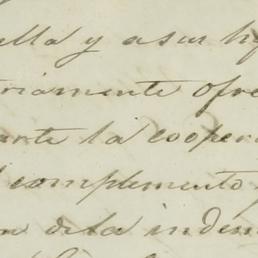 ella y a sus h
riamente ofre
arte la cooper
l complemento
n de la indem